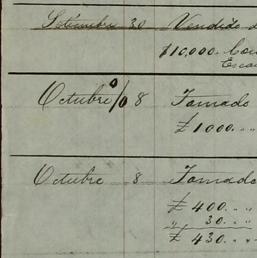 Setiembre 30 Vendido d
$10,000.
Octubre % 8 Tomado
£ 1000 . . .
Octubre 8 Tomado
£ 400 . . "
" 30. . "
£ 430 . "